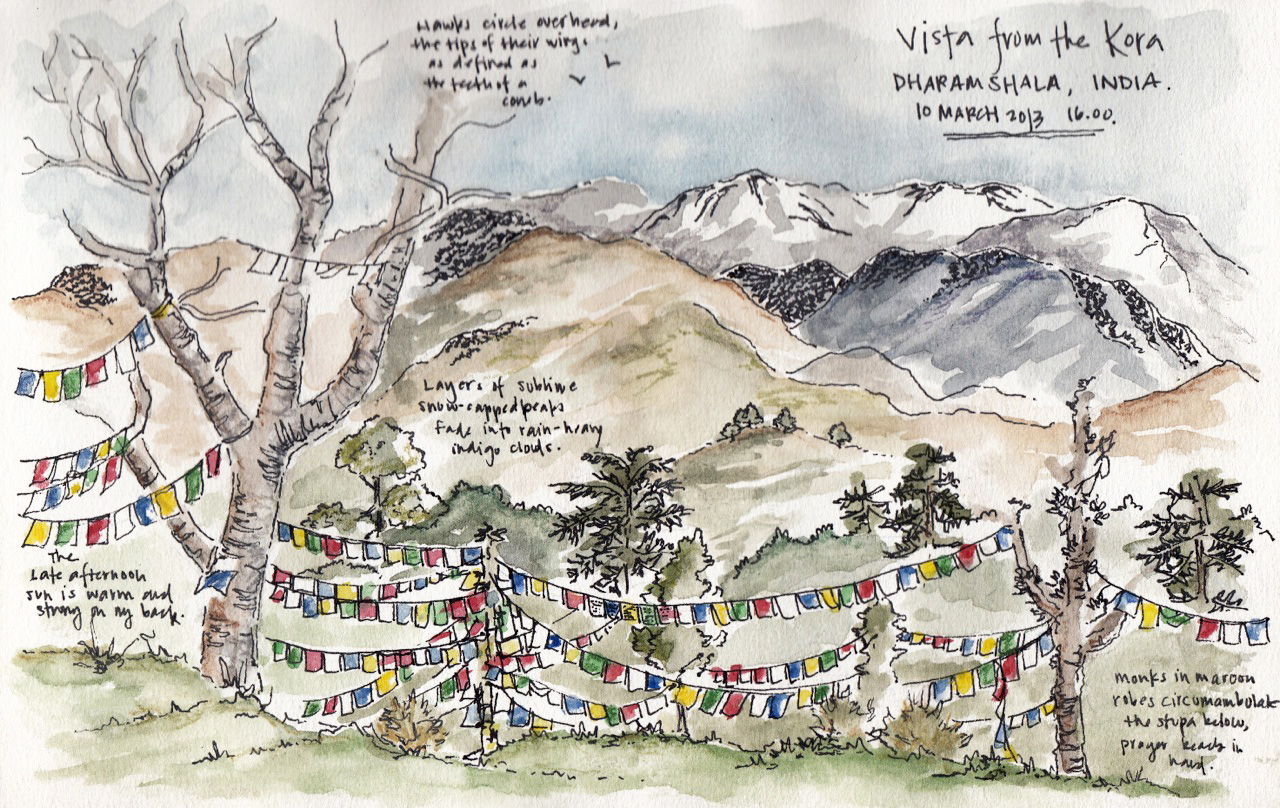 Hawks circle overhead,
the tips of their wings
as defined as
the teeth of a
comb.
Vista from the Kora
DHARAMSHALA, INDIA.
10 MARCH 2013 16.00.
Layers of sublime
snow-capped peaks
fade into rain-heavy
indigo clouds.
The
late afternoon
sun is warm and
strong on my back.
monks in maroon
robes circumambulate
the stupa below,
prayer beads in
hand.